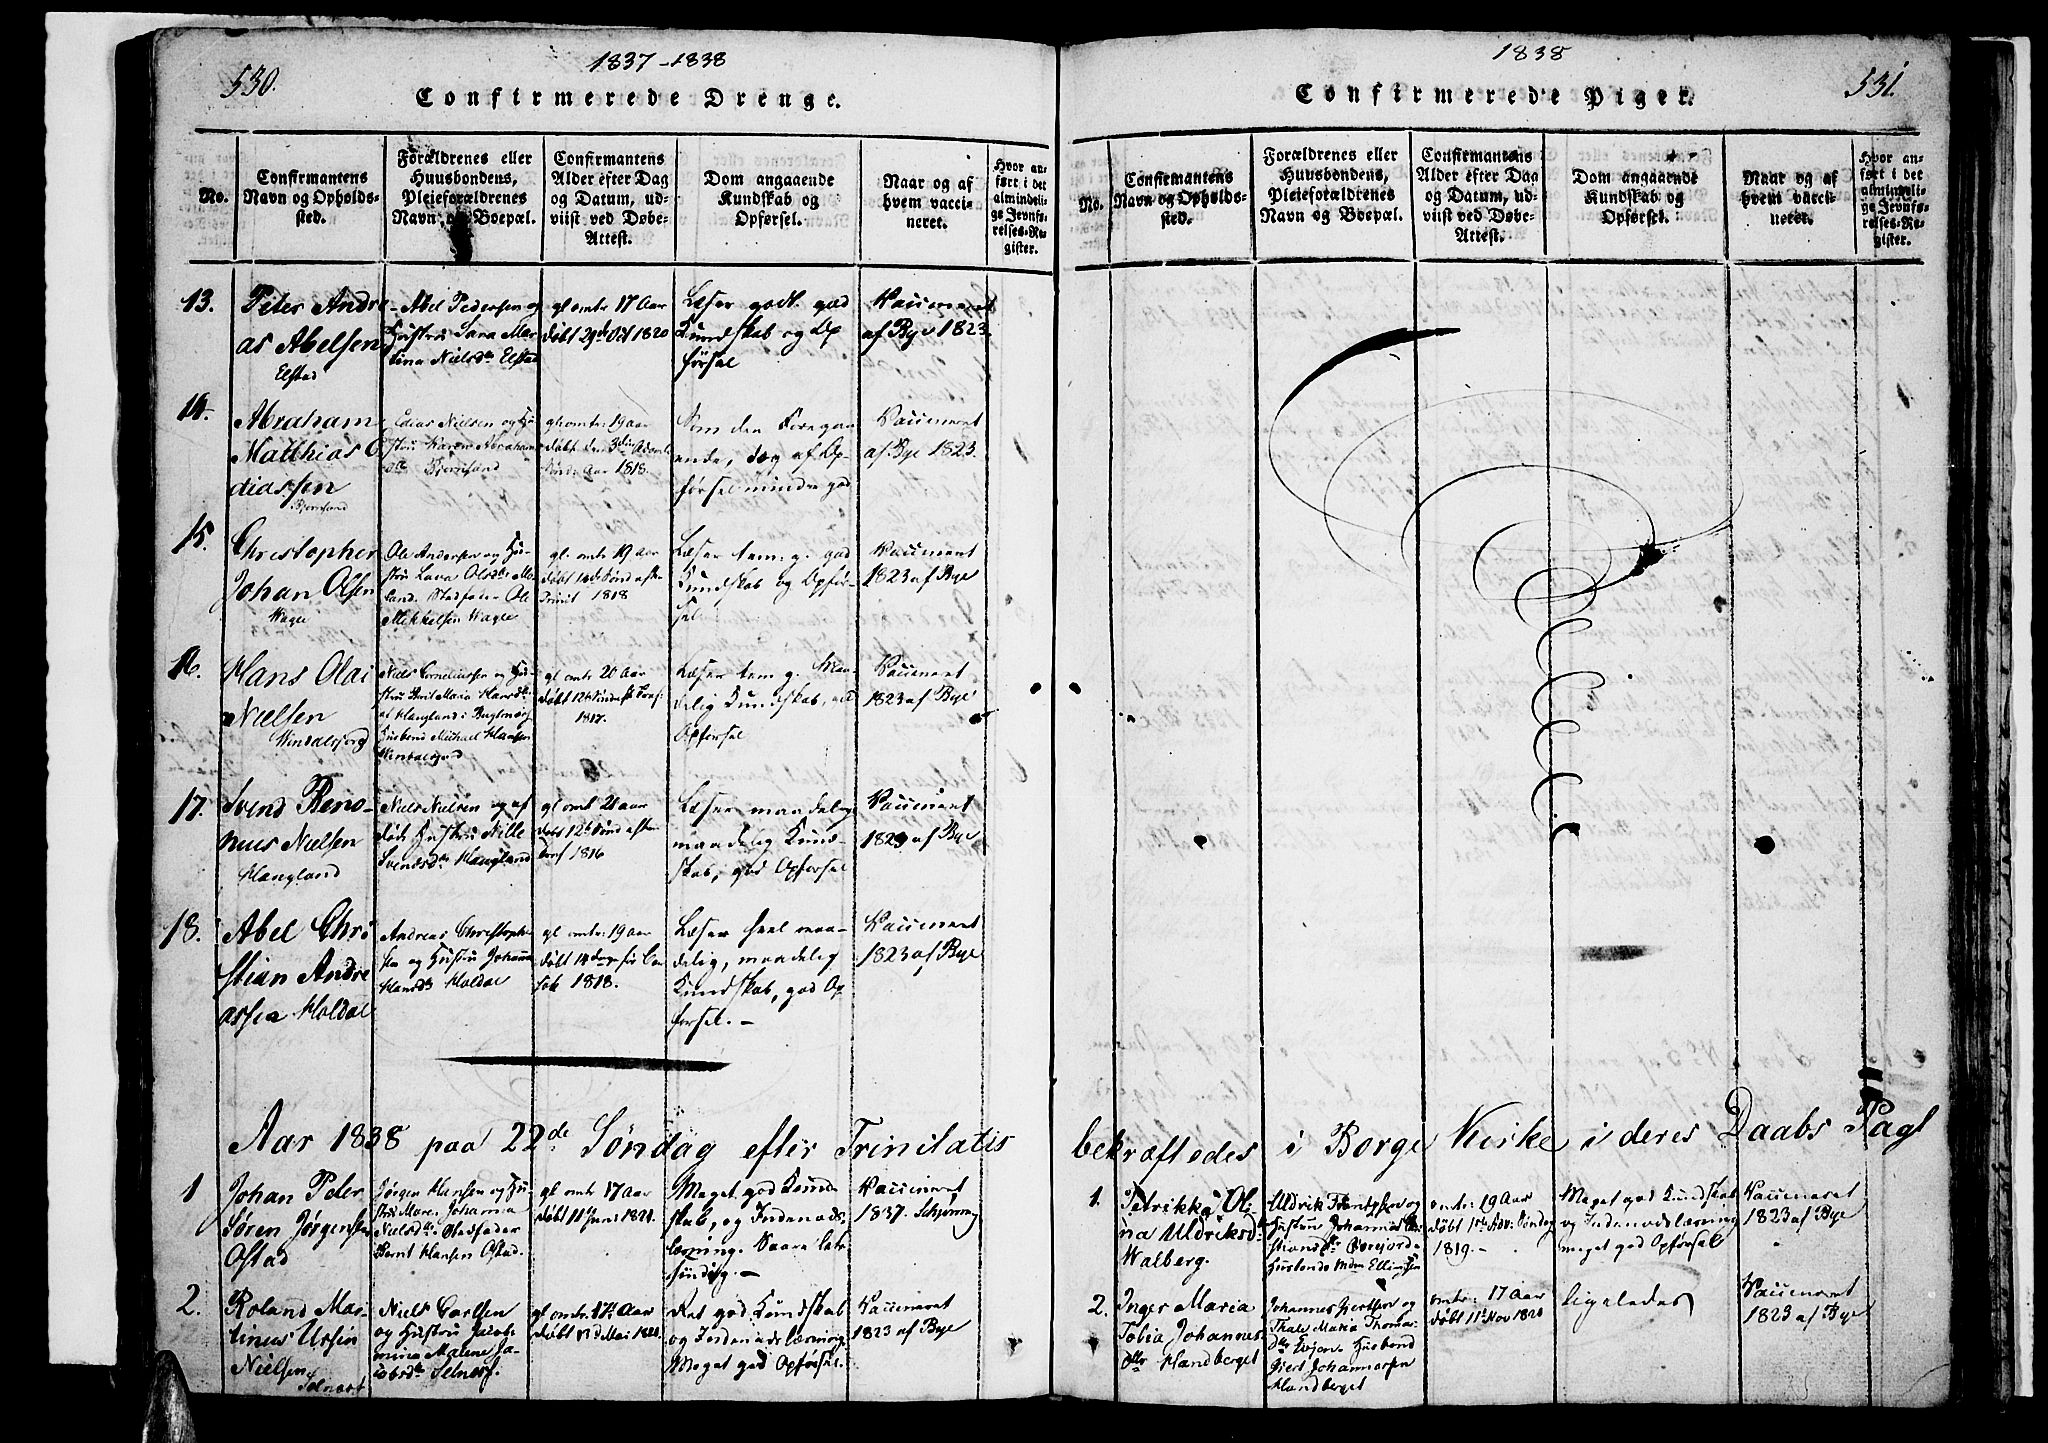 530.
1837-1838
Confirmerede Drenge.
No.
Confirmantens
Navn og Opholds-
sted.
Forældrenes eller
Huusbondens,
Pleieforældrenes
Navn og Boepæl.
Confirmantens
Alder efter Dag
og Datum, ud-
viist ved Døbe-
Attest.
Dom angaaende
Kundskab og
Opførsel.
Naar og af
hvem vacci-
neret.
Hvor an-
ført i det
almindeli-
ge Jevnfø-
relses-Re-
gister.
13.
Peter Andre
as Abelsen
Elstad
Abel Pedersen og
Hustru Sara Mar
tina Nielsdr Elstad
gl omtr 17 Aar
døbt 29de Oct 1820
Læser godt. god
Kundskab og Op
førsel
Vaccineret
af Bye 1823.
14.
Abraham
Matthias E
diassen
Bjørnsand
Edias Nielsen og Hu
stru Karen Abraham
Bjørnsand
gl omtr: 19 aar
døbt den 3die
1818.
Som den Foregaa
ende, dog af Op
førsel mindre god
Vaccineret
af Bye 1823.
15.
Christopher
Johan Olsen
Wagle
Ole Andersen og Hu-
stru Lava Olsdr
Stedfader Ole
Mikkelsen Wagle
gl. omtr 19 aar
døbt 14de Sønd eft
Trinit 1818
Læser tem. g. god
Kundskab og Opfør-
sel.
Vaccineret
1823 af Bye
16.
Hans Olai
Nielsen
Niels Corneliussen og Hu
stru
Maria Hansdr
Haugland i
Husbond Michael Hansen
gl omtr 20 Aar
døbt 12te
1817.
Læser tem g. Maa-
delig Kundskab, god
Opførsel
Vaccineret
1823 af Bye
17.
Svend Reno-
nus Nielsen
Haugland
Niels Nielsen og af
døde Hustru Nille
Svendsdr Haugland
gl omtr 20 aar
døbt 12te Sønd efter
1816
Læser maadelig
maadelig Kund
skab, god Opførsel
Vaccineret
1823 af Bye
18.
Abel Chri
stian Andre
assen Holdal
Andreas Christoph
sen og Hustru Johanna
Hansdr Holdal
gl omtr: 19 aar
døbt 14
1818.
Læser heel maa-
delig, maadelig
Kundskab, god Op
førsel. -
Vaccineret
1823 af Bye
Aar 1838 paa 22de Søndag efter Trinitatis
1
Johan Peter
Søren Jørgensen
Ostad
Jørgen Hansen og Hu-
stru Maren Johanna
Nielsdr Stedfader
Bernt Hansen Ostad.
gl omtr 17 Aar
døbt 11 Juni 1821.
Meget god Kund
skab, og Indenads
læsning.
Vaccineret
1837.
2.
Roland Mar
tinus Ursin
Nielsen
Selnæs
Niels Carlsen
og Hustru Jacob
mina Malene Ja-
cobsdr Selnæs.
gl omtr: 17 Aar
døbt
Mai
Ret god Kundskab
og Indenadslæsning
Meget god Opførsel.
Vaccineret
1823 af Bye
1838
531.
Confirmerede Piger.
No.
Confirmantens
Navn og Opholds-
sted.
Forældrenes eller
Huusbondens,
Pleieforældrenes
Navn og Boepæl.
Confirmantens
Alder efter Dag
og Datum, ud-
viist ved Døbe-
Attest.
Dom angaaende
Kundskab og
Opførsel.
Naar og af
hvem vacci-
neret.
Hvor an-
ført i det
almindeli-
ge Jevnfø-
relses-Re-
gister.
bekræftedes i Borge Kirke i deres Daabs Pagt
1.
Petrikka Ol
na Uldriksdr
Walberg.
Uldrik Frantzsen og
Hustru Johanna
Husbonde
Ellingsen
omtr: 19 Aar
døbt 1ste Adv: Søndag
1819. -
Meget god Kundskab
og Indenadslæsning
meget god Opførsel
Vaccineret
1823 af Bye
2.
Inger Maria
Tobia Johannes
dtr Handberget
Johannes Giertsen og
Thale Maria Thomas
dtr Evjen. Husbond
Giert Johannesen
Handberget
omtr: 17 Aar
døbt 11te Nov 1820
ligeledes
Vaccineret
1823 af Bye